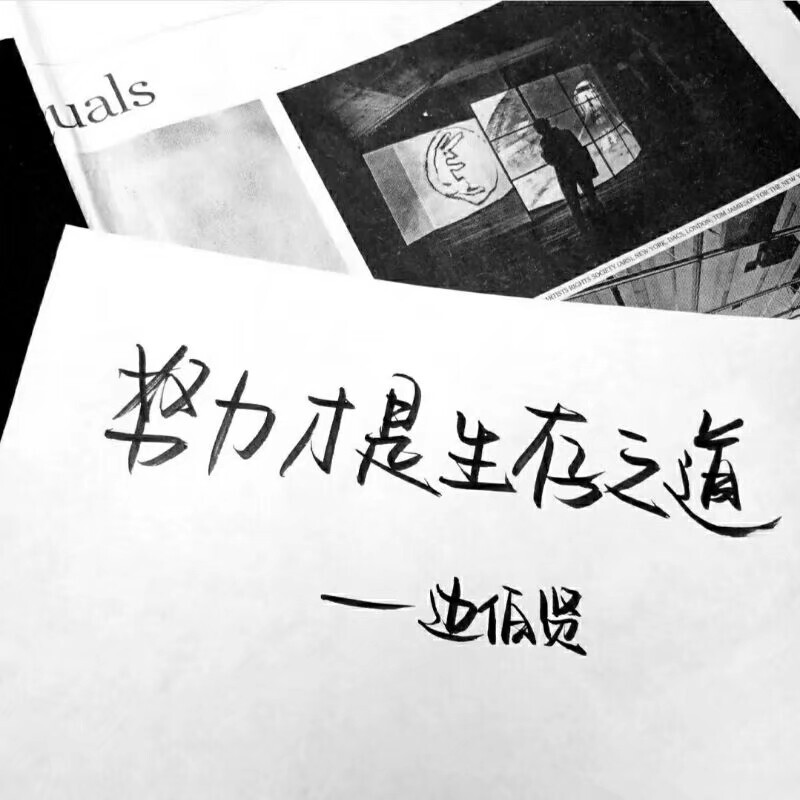 uals
ARTISTS RIGHTS SOCIETY (ARS), NEW YORK, DACS, LONDON; TOM JAMIESON FOR THE NEW Y
努力才是生存之道
一边伯贤